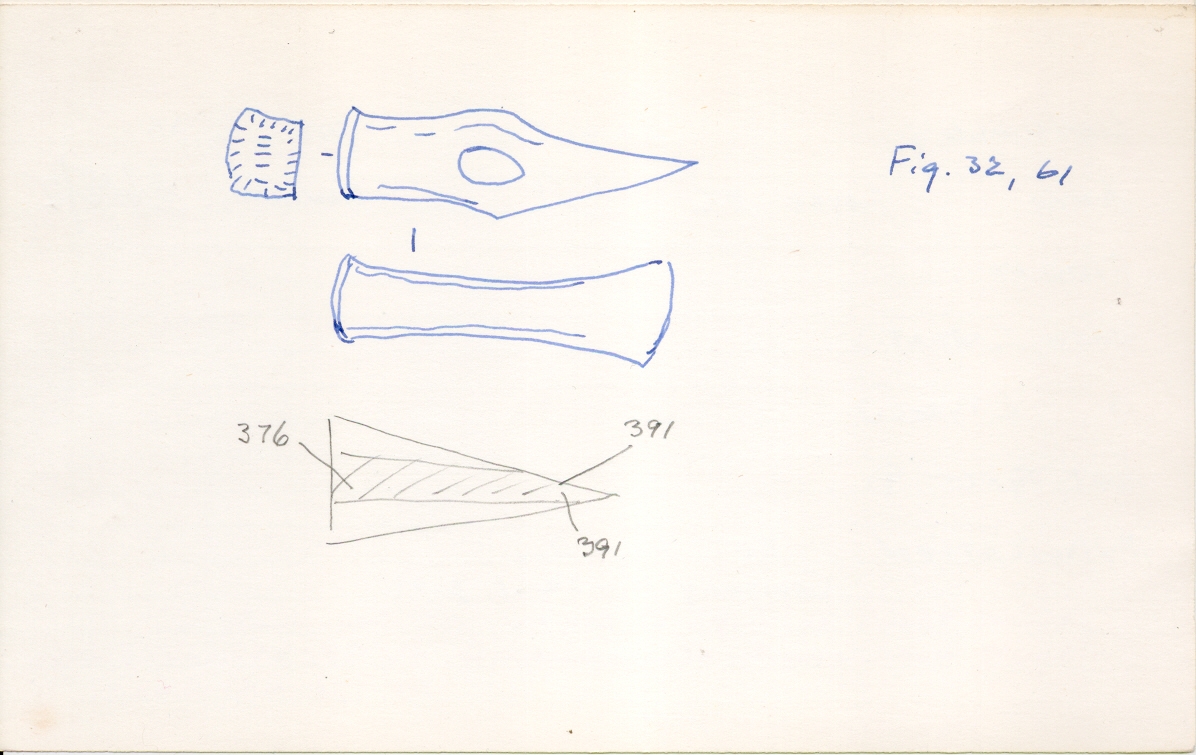 Fig. 32, 61
376
391
391